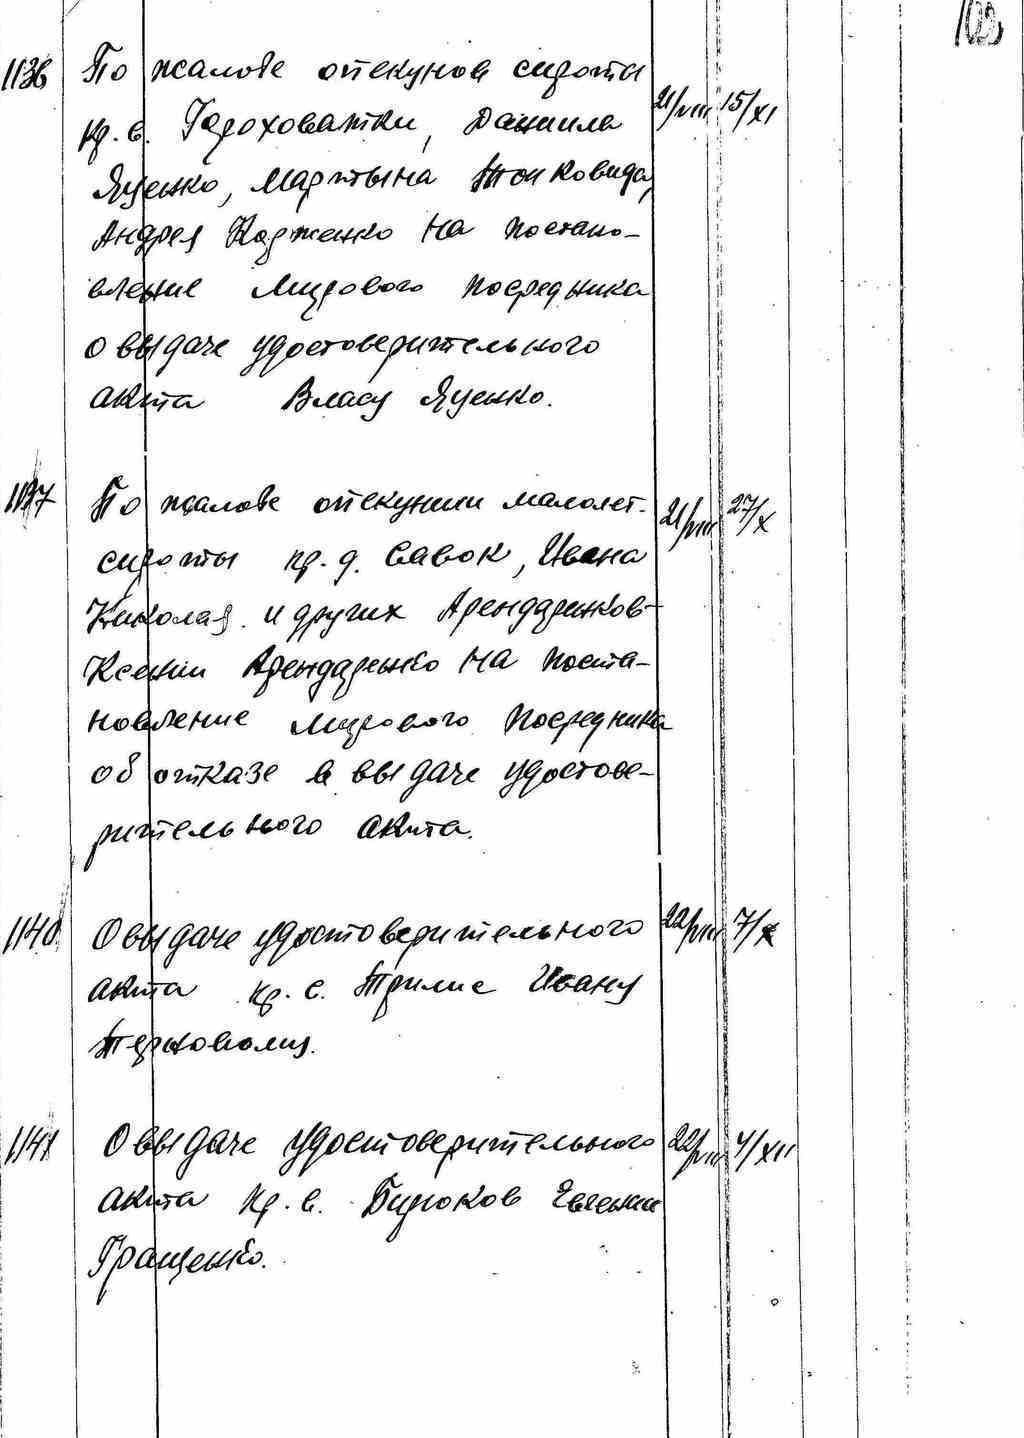 103
1136 По жалобе опекунов сироты 21/VIII 15/XI
кр. с. Гороховатки, Даниила
Яценко, Мартына Тонковида,
Андрея Корженко на постано-
вление Мирового посредника
о выдаче удостоверительного
акта Власу Яценко.
1137 По жалобе опекунши малолет. 21/VIII 27/X
сироты кр. д. Савок, Ивана
Николая и других Арендаренков-
Ксении Арендаренко на поста-
новление мирового посредника
об отказе в выдаче удостове-
рительного акта.
1140 О выдаче удостоверительного 22/VIII 7/X
акта кр. с. Триліс Ивану
Терновому.
1141 О выдаче удостоверительного 22/VIII 4/XII
акта кр. с. Бирюков Евгении
Гращенко.